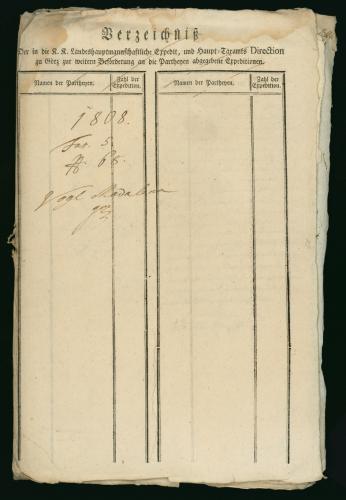 Verzeichniß
Der in die K. K. Landeshauptmannschaftliche Expedit, und Haupt-Taxamts Direction
zu Görz zur weitern Beförderung an die Partheyen abgegebene Expeditionen.
Namen der Partheyen. Zahl der Expedition. Namen der Partheyen. Zahl der Expedition.
1808.
Fas. 5.
N. 68.
Vogl